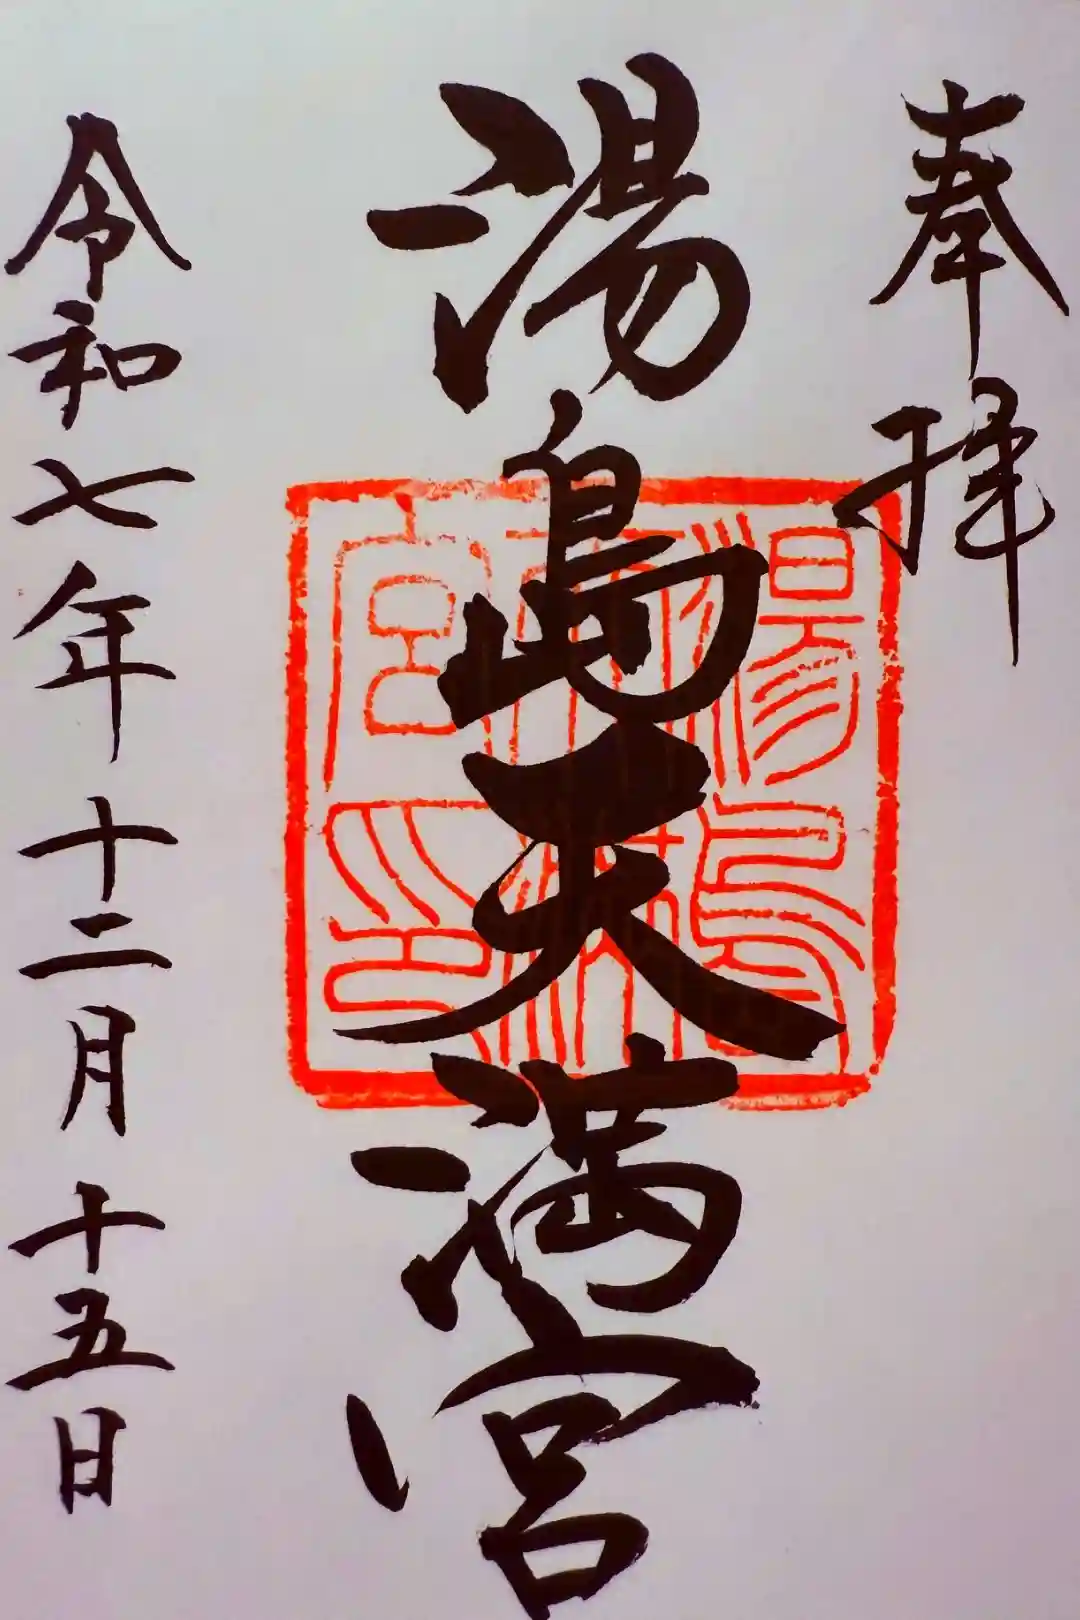 奉拝
湯島天満宮
令和七年十二月十五日
湯島
天神
宮印